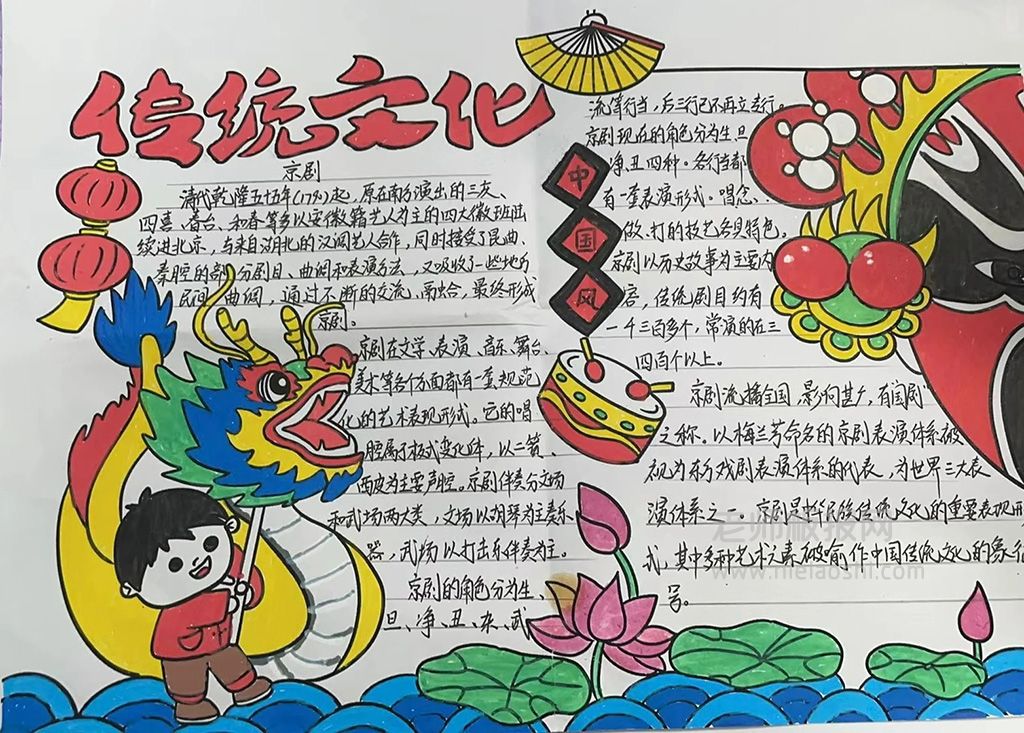 传统文化
京剧
清代乾隆五十五年(1790)起,原在南方演出的三庆、
四喜、春台、和春等多以安徽籍艺人为主的四大徽班陆
续进北京,与来自湖北的汉调艺人合作,同时接受了昆曲、
秦腔的部分剧目、曲调和表演方法,又吸收了一些地方
民间曲调,通过不断的交流、融合,最终形成
京剧。
京剧在文学、表演、音乐、舞台、
美术等各个方面都有一套规范
化的艺术表现形式。它的唱
腔属于板式变化体,以二簧、
西皮为主要声腔。京剧伴奏分文场
和武场两大类,文场以胡琴为主奏乐
器,武场以打击乐伴奏为主。
京剧的角色分为生、
旦、净、丑、杂、武、
流等行当,后三行已不再立专行。
京剧现在的角色分为生、旦、
净、丑四种。各行当都
有一套表演形式。唱念
做、打的技艺各具特色。
京剧以历史故事为主要内
容,传统剧目约有
一千三百多个,常演的在三
四百个以上。
京剧流播全国,影响甚广,有国剧
之称。以梅兰芳命名的京剧表演体系被
视为东方戏剧表演体系的代表,为世界三大表
演体系之一。京剧是中华民族传统文化的重要表现形
式,其中多种艺术元素被用作中国传统文化的象征
号。
中
国
风
老师板报网
www.mielaoshi.com